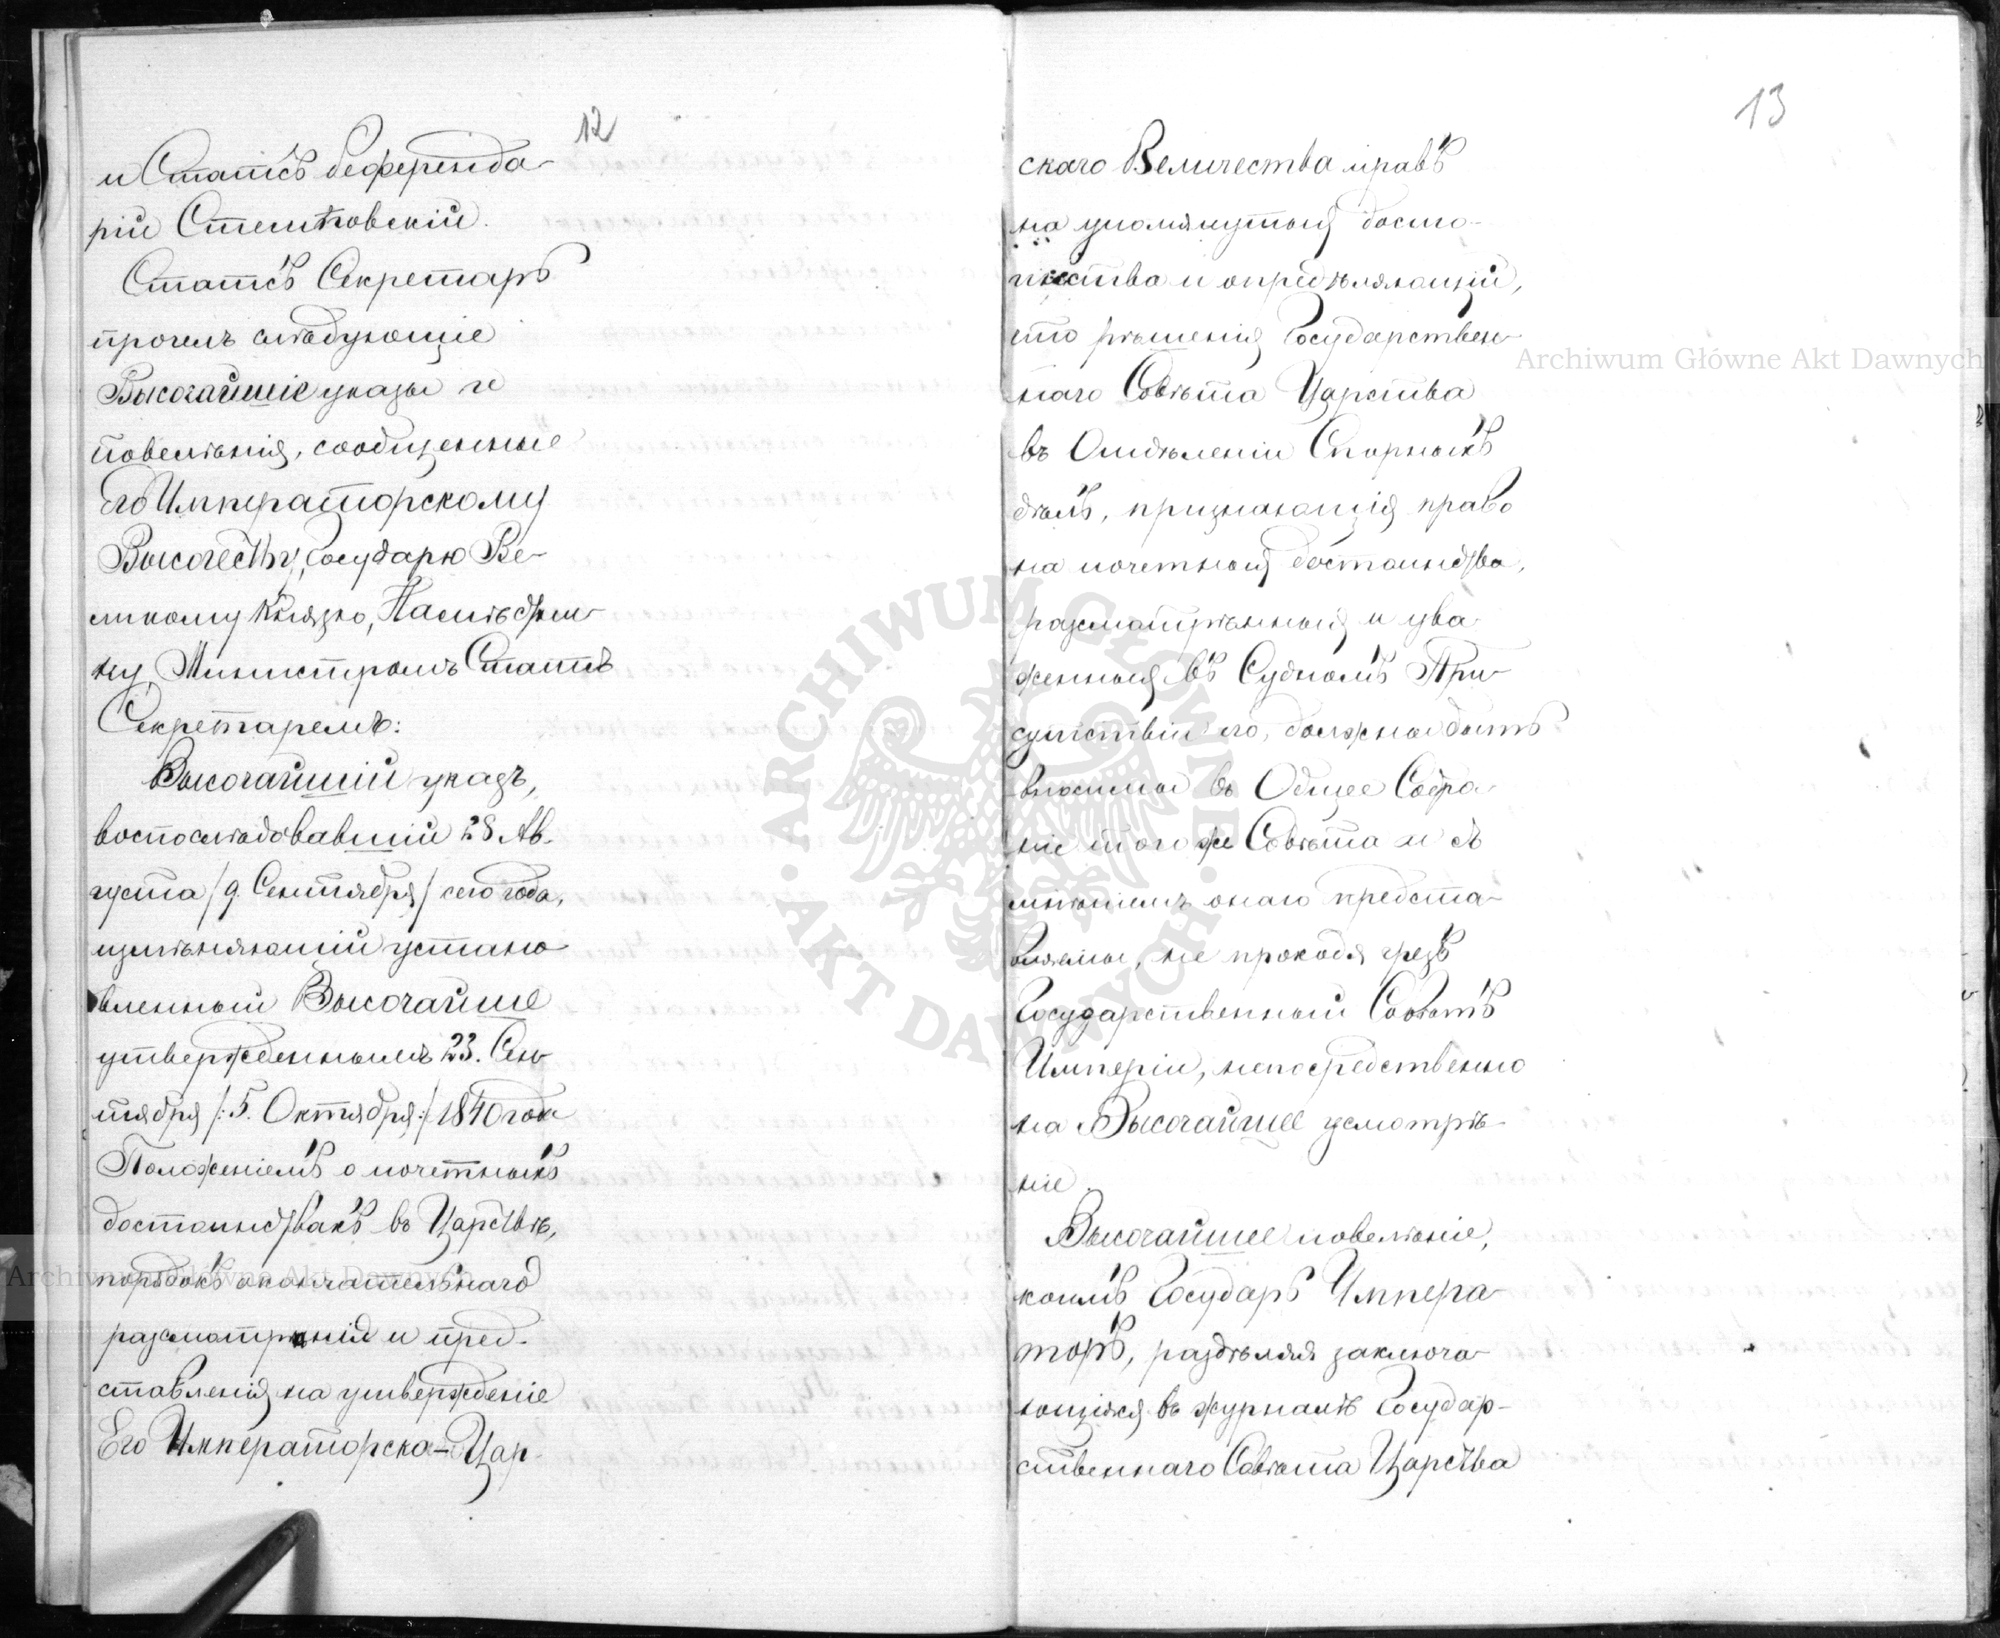 12
и Статсъ Референда-
рій Стешковскій.
Статсъ Секретарь
прочелъ слѣдующіе
Высочайшіе указы и
повелѣнія, сообщенные
Его Императорскому
Высочеству, Государю Ве-
ликому Князю, Намѣстни-
ку, Министромъ Статсъ
Секретаремъ:
Высочайшій указъ,
воспослѣдовавшій 28 Ав-
густа /9. Сентября/ сего года,
измѣняющій устано-
вленный Высочайше
утвержденнымъ 23. Сен-
тября /:5. Октября:/ 1840 года
Положеніемъ о почетныхъ
достоинствахъ въ Царствѣ,
порядокъ окончательнаго
разсмотрѣнія и пред-
ставленія на утвержденіе
Его Императорско-Цар-
13
скаго Величества правъ
на упомянутыя досто-
инства и опредѣляющій,
что рѣшенія Государствен-
наго Совѣта Царства
въ Отдѣленіи Спорныхъ
дѣлъ, признающія право
на почетныя достоинства,
разсмотрѣнныя и ува-
женныя въ Судномъ При-
сутствіи его, должны быть
вносимы въ Общее Собра-
ніе того же Совѣта и съ
мнѣніемъ онаго предста-
вляемы, не проходя чрезъ
Государственный Совѣтъ
Имперіи, непосредственно
на Высочайшее усмотрѣ-
ніе.
Высочайшее повелѣніе,
коимъ Государь Импера-
торъ, раздѣляя заключа-
ющіяся въ журналѣ Государ-
ственнаго Совѣта Царства
Archiwum Główne Akt Dawnych
Archiwum Główne Akt Dawnych
ARCHIWUM GŁÓWNE · AKT DAWNYCH ·